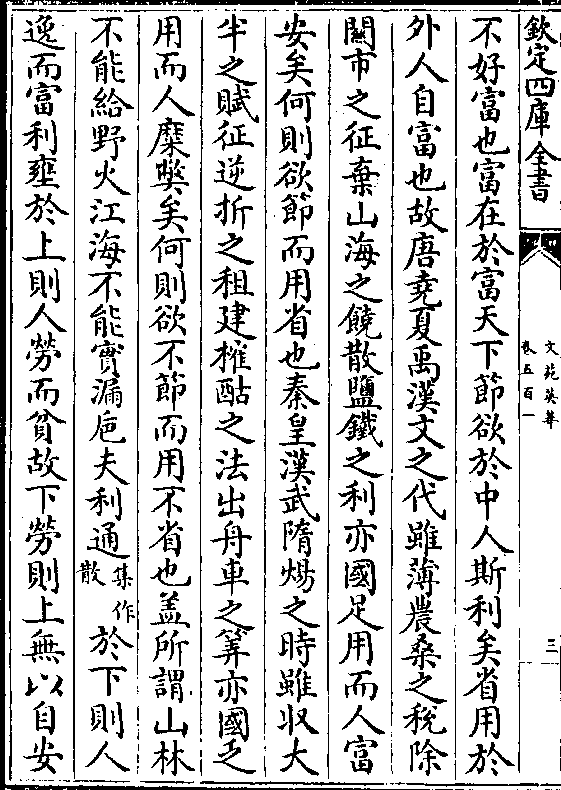 欽定四庫全書
文苑英華
卷五百一
三
不好富也富在於富天下節欲於中人斯利矣省用於
外人自富也故唐堯夏禹漢文之代雖薄農桑之税除
關市之征棄山海之饒散鹽鐵之利亦國足用而人富
安矣何則欲節而用省也秦皇漢武隋煬之時雖収大
半之賦征逆折之租建榷酤之法出舟車之筭亦國乏
用而人糜弊矣何則欲不節而用不省也盖所謂山林
不能給野火江海不能實漏巵夫利通集作散於下則人
逸而富利壅於上則人勞而貧故下勞則上無以自安